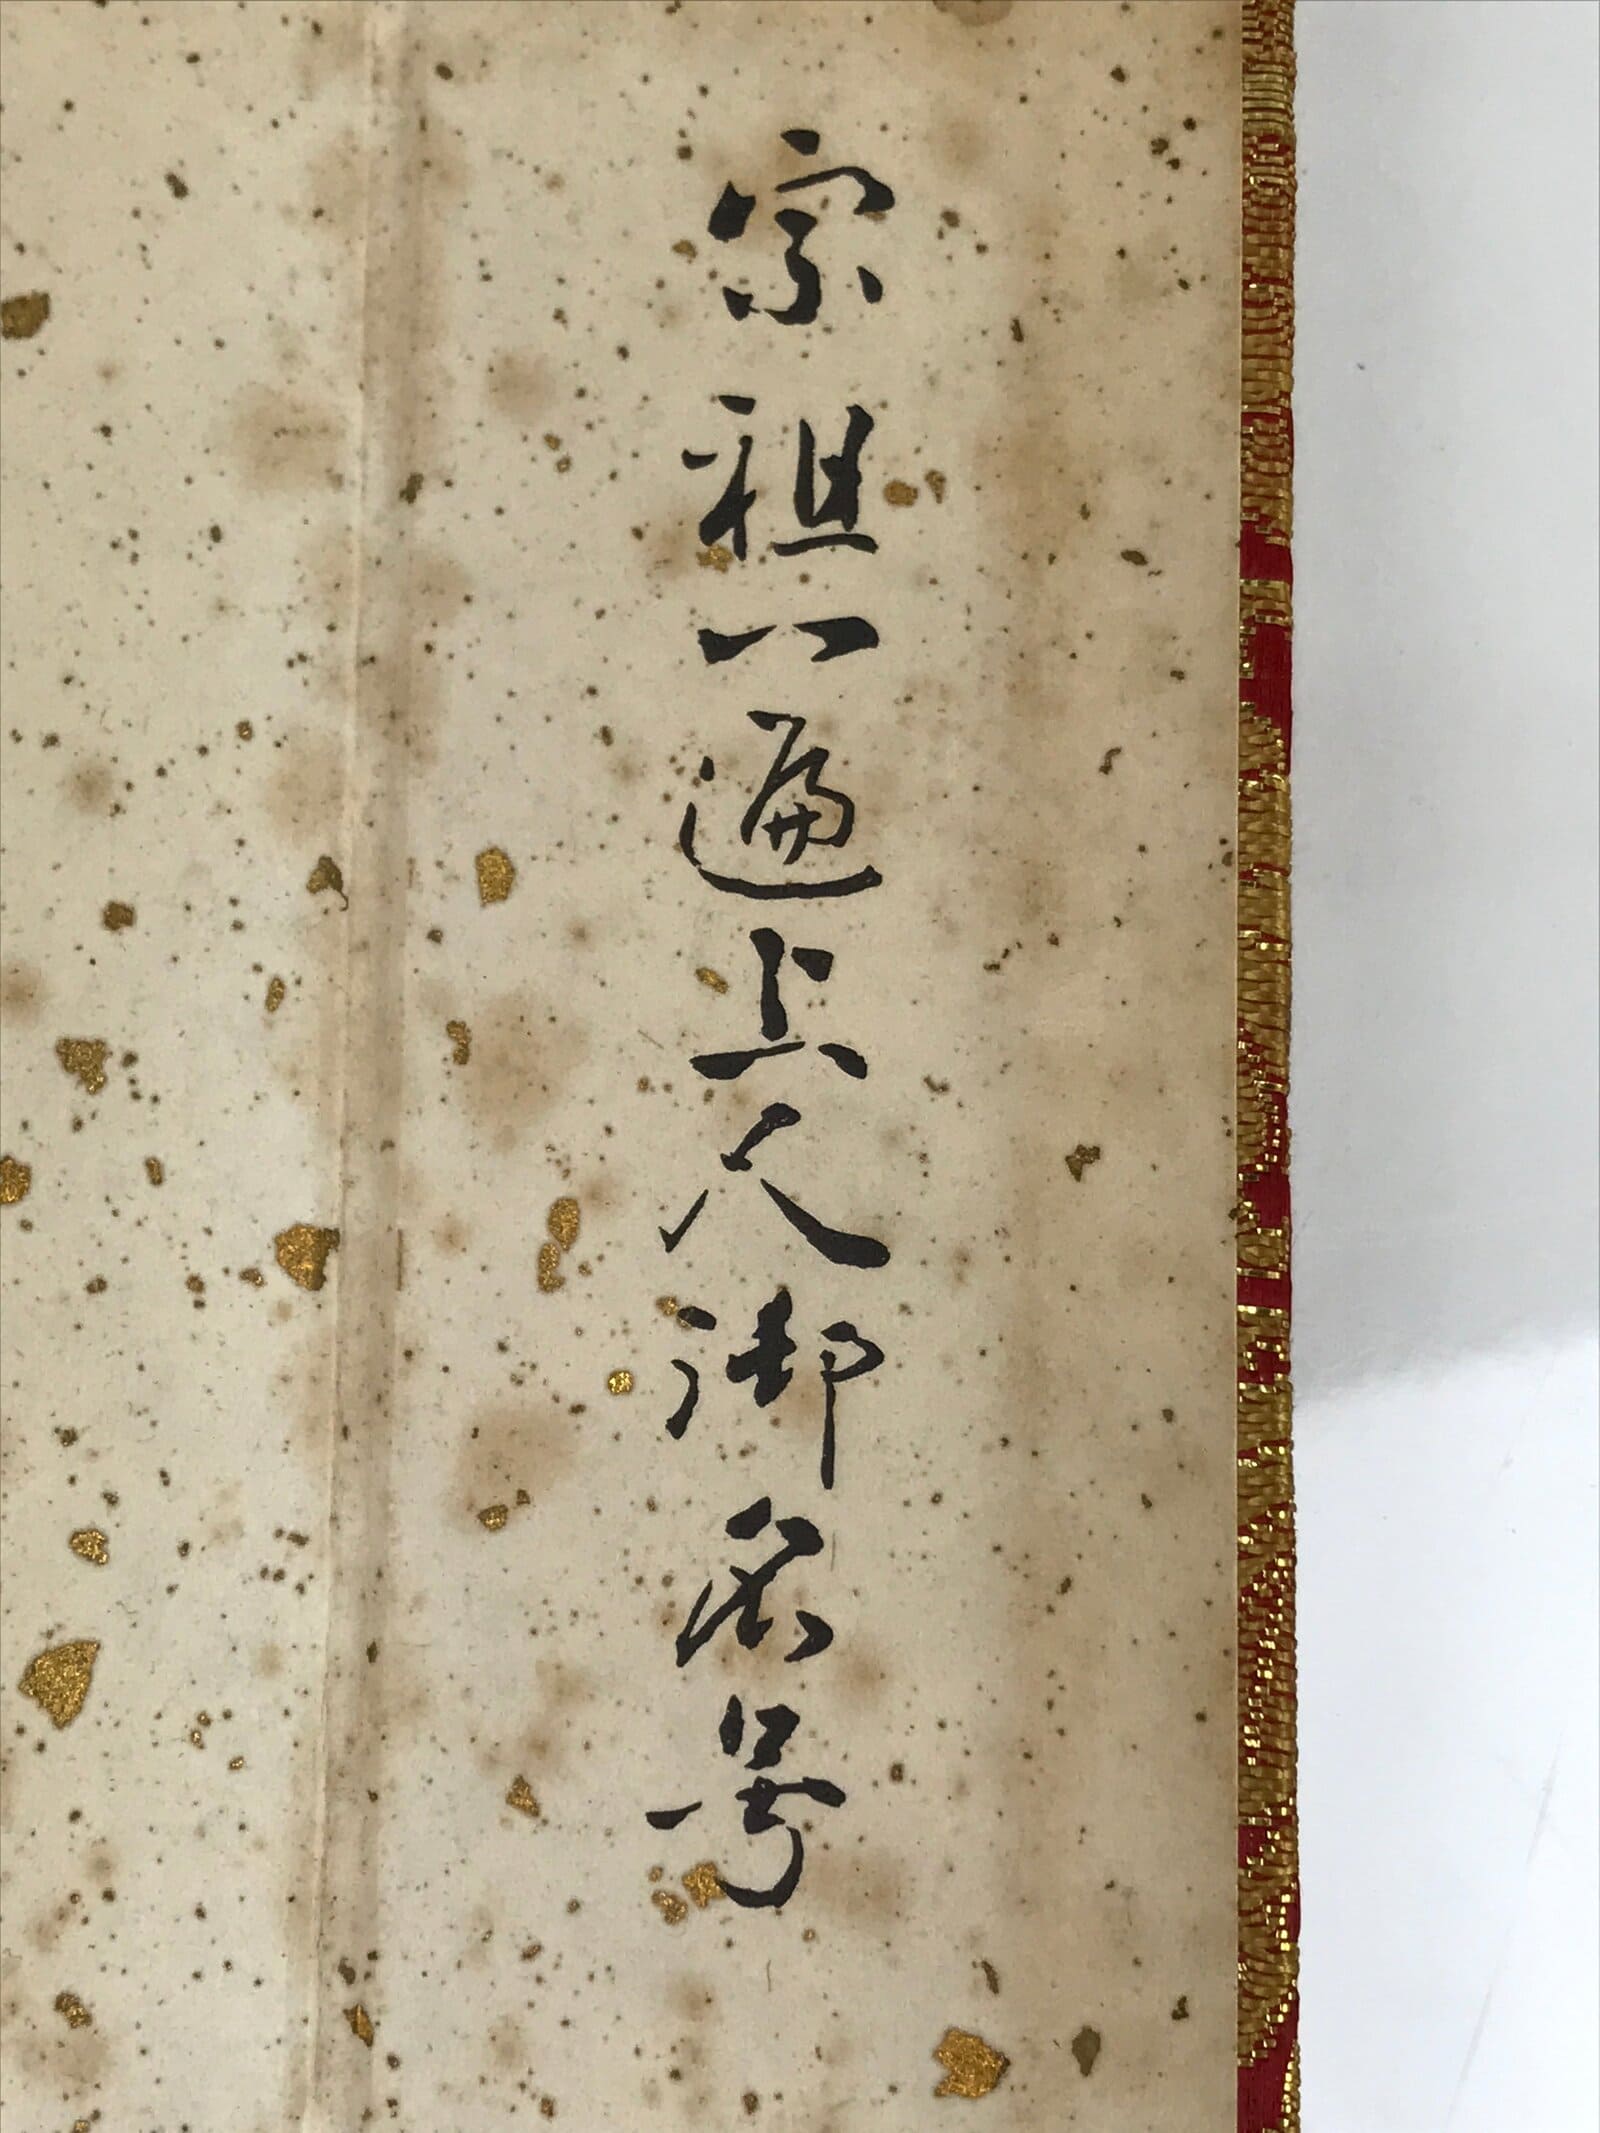 宗祖一遍上人御名号